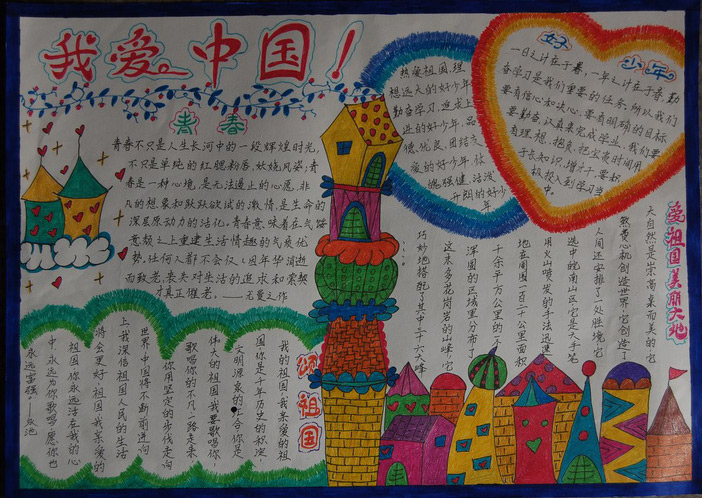 我爱中国！
青春
青春不只是人生长河中的一段辉煌时光，
不只是单纯的红腮粉唇，妖娆风姿；青
春是一种心境，是无法遏止的心愿，非
凡的想象和跃跃欲试的激情；是生命的
深层原动力的活化。青春意味着在气
意颓之上重建生活情趣的气质优
势，任何人都不会仅仅因年华消逝
而致老，丧失对生活的追求和索
才真正催老。
热爱祖国，理
想远大的好少年
勤奋学习，追求上
进的好少年，品
德优良，团结友
爱的好少年，体
魄强健，活泼
开朗的好少年
好少年
一日之计在于春，一年之计在于春，勤
奋学习是我们重要的任务，所以我们
要有信心和决心。要有明确的目标
要勤奋，认真来完成学业，我们要
有理想，抱负，把宝贵时间用
于长知识，增才干，要积
极投入到学习当
中。
爱祖国美丽大地
大自然是山崇高桌而美的，它
煞费心机创造世界，它创造了
人间，还安排了一处胜境，它
选中皖南山区，它是大手笔
用火山喷发的手法，迅速
地在周围一百二十公里，面积
千余平方公里的
深圆的区域里分布了
这末多花岗岩的山峰，它
巧妙地搭配了其中三十六大峰
颂祖国
我的祖国，我亲爱的祖
国，你是千年历史的积淀，
文明源泉的汇合，你是
伟大的祖国，我要歌唱你，
歌唱你的不凡，一路走来
你用坚定的步伐走向
世界，中国将不断前进向
上，我深信祖国人民的生活
将会更好，祖国，我亲爱的
祖国，你永远活在我的心
中，永远为你歌唱，愿你也
永远富强